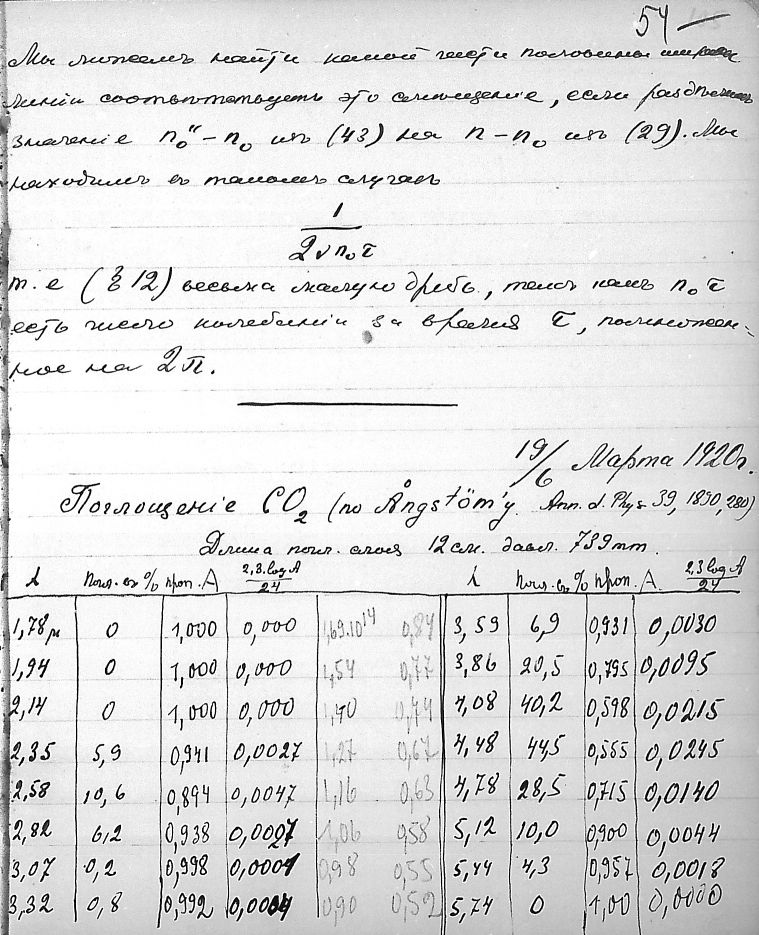 54 —
Мы можемъ найти какой части половины ширины
линіи соотвѣтствуетъ это смѣщеніе, если раздѣлимъ
значеніе n₀" – n₀ изъ (43) на n – n₀ изъ (29). Мы
находимъ въ такомъ случаѣ
1
2νn₀τ
т.е (§ 12) весьма малую дробь, такъ какъ n₀τ
есть число колебаній за время τ, помножен-
ное на 2π.
19/6 Марта 1920г.
Поглощеніе CO₂ (по Ångstöm'у. Ann. d. Phys 39, 1890, 280)
Длина погл. слоя 12 см. давл. 739 mm.
λ погл. въ % проп. A 2,3.logA/24 λ погл. въ % проп. A. 2,3 logA/24
1,78μ 0 1,000 0,000 1,69.10¹⁴ 0,84 3,59 6,9 0,931 0,0030
1,94 0 1,000 0,000 1,54 0,77 3,86 20,5 0,795 0,0095
2,14 0 1,000 0,000 1,40 0,74 4,08 40,2 0,598 0,0215
2,35 5,9 0,941 0,0027 1,27 0,67 4,48 44,5 0,555 0,0245
2,58 10,6 0,894 0,0047 1,16 0,63 4,78 28,5 0,715 0,0140
2,82 6,2 0,938 0,0027 1,06 0,58 5,12 10,0 0,900 0,0044
3,07 0,2 0,998 0,0001 0,98 0,55 5,44 4,3 0,957 0,0018
3,32 0,8 0,992 0,0004 0,90 0,52 5,74 0 1,00 0,0000